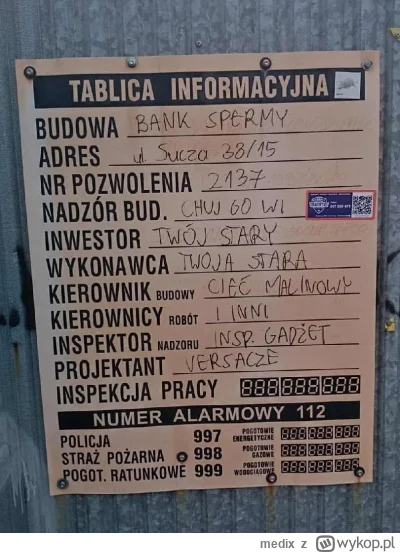 TABLICA INFORMACYJNA
BUDOWA BANK SPERMY
ADRES ul. Sucza 38/15
NR POZWOLENIA 2137
NADZÓR BUD. CHUJ GO WI
INWESTOR TWÓJ STARY
WYKONAWCA TWOJA STARA
KIEROWNIK BUDOWY CIEĆ MALINOWY
KIEROWNICY ROBÓT I INNI
INSPEKTOR NADZORU INSP. GADŻET
PROJEKTANT VERSACZE
INSPEKCJA PRACY
NUMER ALARMOWY 112
POLICJA 997 POGOTOWIE ENERGETYCZNE
STRAŻ POŻARNA 998 POGOTOWIE GAZOWE
POGOT. RATUNKOWE 999 POGOTOWIE WODOCIĄGOWE
medix z wykop.pl